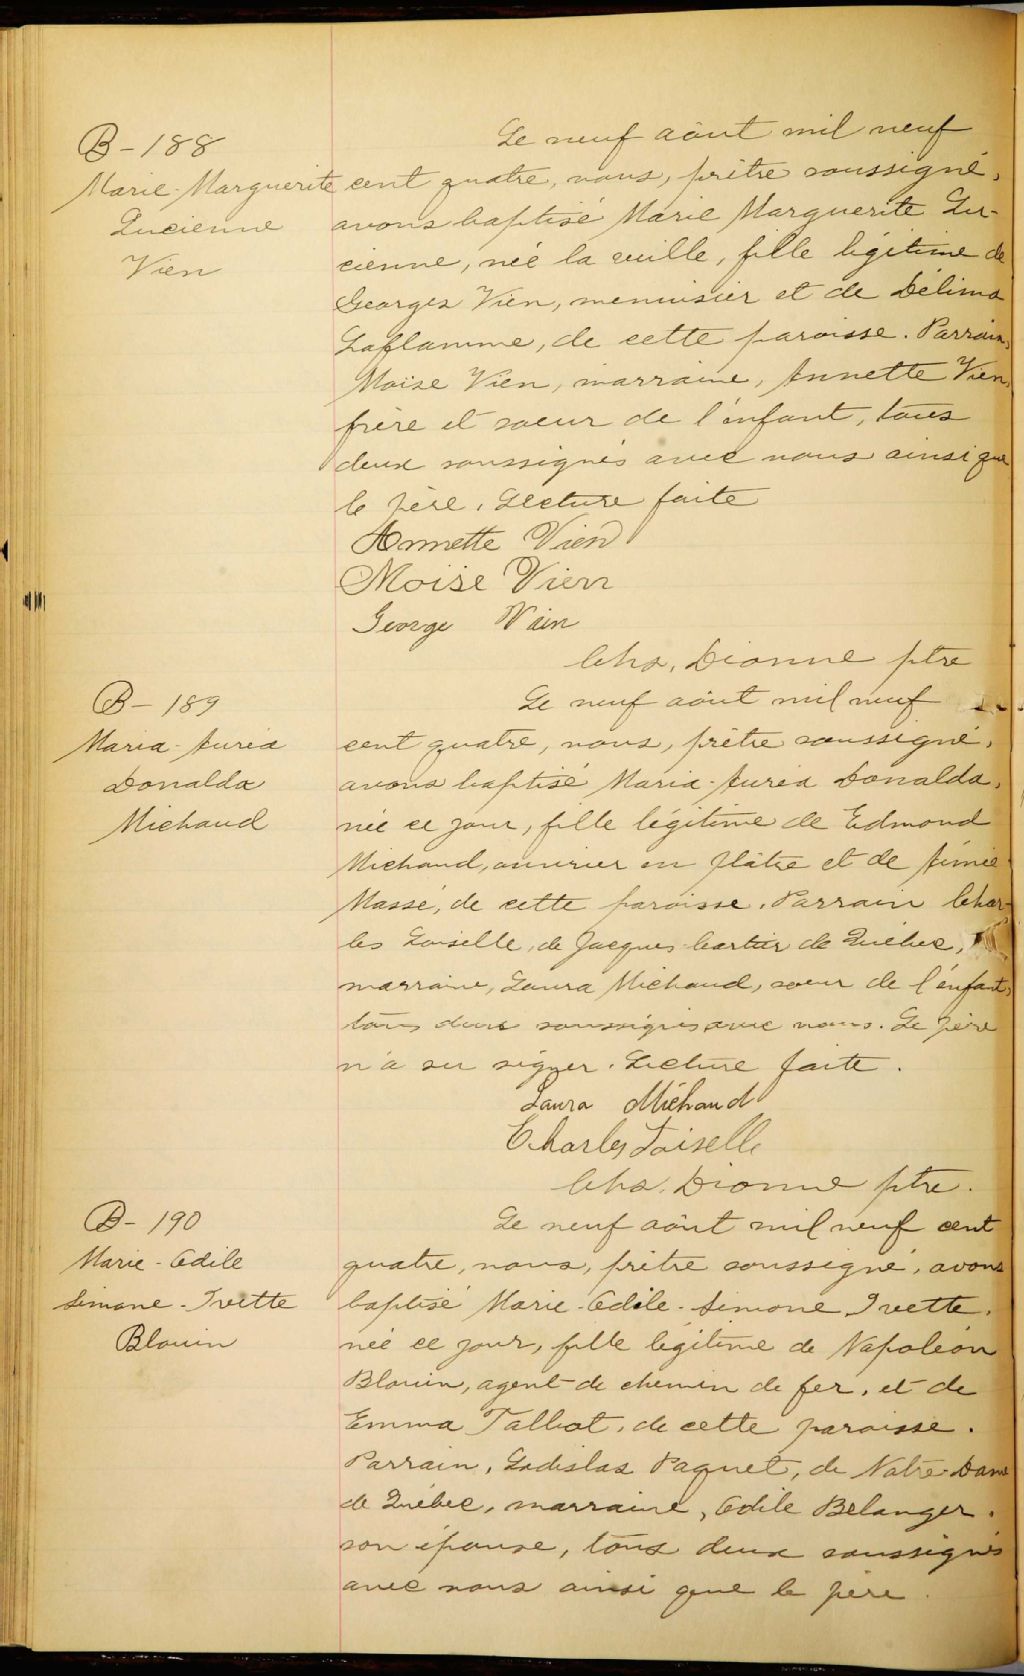 B-188
Marie-Marguerite
Lucienne
Vien
Le neuf août mil neuf
cent quatre, nous, prêtre soussigné,
avons baptisé Marie Marguerite Lu-
cienne, née la veille, fille légitime de
Georges Vien, menuisier et de Délima
Laflamme, de cette paroisse. Parrain,
Moïse Vien, marraine, Annette Vien,
frère et soeur de l'enfant, tous
deux soussignés avec nous ainsi que
le père. Lecture faite
Annette Vien
Moïse Vien
George Vien
Chs. Dionne ptre
B-189
Maria-Auréa
Donalda
Michaud
Le neuf août mil neuf
cent quatre, nous, prêtre soussigné,
avons baptisé Maria-Auréa Donalda,
née ce jour, fille légitime de Edmond
Michaud, ouvrier en plâtre et de Aimée
Massé, de cette paroisse. Parrain Char-
les Loiselle, de Jacques-Cartier de Québec,
marraine, Laura Michaud, soeur de l'enfant,
tous deux soussignés avec nous. Le père
n'a su signer. Lecture faite.
Laura Michaud
Charles Loiselle
Chs. Dionne ptre.
B-190
Marie-Odile
Simone-Ivette
Blouin
Le neuf août mil neuf cent
quatre, nous, prêtre soussigné, avons
baptisé Marie-Odile-Simone Ivette,
née ce jour, fille légitime de Napoléon
Blouin, agent de chemin de fer, et de
Emma Talbot, de cette paroisse.
Parrain, Ladislas Paquet, de Notre-Dame
de Québec, marraine, Odile Bélanger,
son épouse, tous deux soussignés
avec nous ainsi que le père.